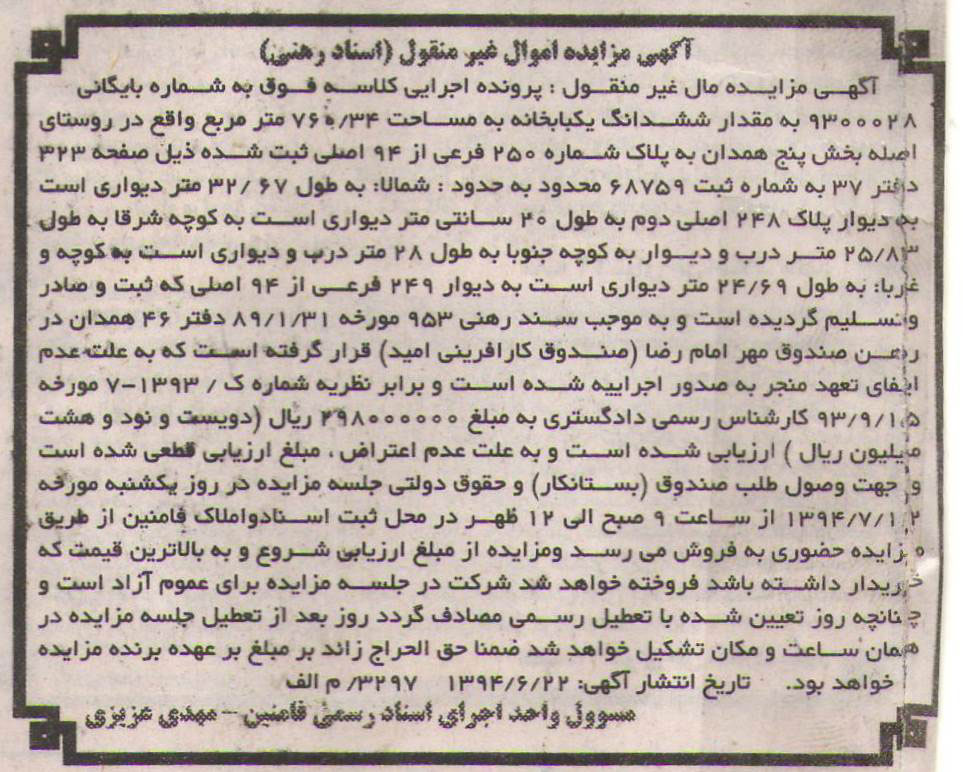 آگهی مزایده اموال غیر منقول (اسناد رهنی)
آگهـی مزایـده مال غیر منقـول : پرونده اجرایی کلاسـه فـوق به شـماره بایگانی
۹۳۰۰۰۲۸ به مقدار ششدانگ یکبابخانه به مساحت ۷۶۰/۳۴ متر مربع واقع در روستای
اصله بخش پنج همدان به پلاک شـماره ۲۵۰ فرعی از ۹۴ اصلی ثبت شـده ذیل صفحه ۳۲۳
دفتر ۳۷ به شماره ثبت ۶۸۷۵۹ محدود به حدود : شمالا: به طول ۳۲/۶۷ متر دیواری است
به دیوار پلاک ۲۴۸ اصلی دوم به طول ۲۰ سـانتی متر دیواری اسـت به کوچه شرقا به طول
۲۵/۸۳ متـر درب و دیـوار به کوچه جنوبا به طول ۲۸ متر درب و دیواری اسـت به کوچه و
غربا: به طول ۲۴/۶۹ متر دیواری اسـت به دیوار ۲۴۹ فرعـی از ۹۴ اصلی که ثبت و صادر
و تسـلیم گردیده است و به موجب سـند رهنی ۹۵۳ مورخه ۸۹/۱/۳۱ دفتر ۴۶ همدان در
رهـن صندوق مهر امام رضا (صنـدوق کارافرینی امید) قرار گرفته اسـت که به علت عدم
ایفای تعهد منجر به صدور اجراییه شـده است و برابر نظریه شماره ک / ۱۳۹۳-۷ مورخه
۹۳/۹/۱۵ کارشناس رسمی دادگستری به مبلغ ۲۹۸۰۰۰۰۰۰ ریال (دویست و نود و هشت
میلیون ریال ) ارزیابی شـده اسـت و به علت عدم اعتراض ، مبلغ ارزیابی قطعی شده است
و جهت وصول طلب صندوق (بستانکار) و حقوق دولتی جلسه مزایده در روز یکشنبه مورخه
۱۳۹۴/۷/۱۲ از سـاعت ۹ صبح الی ۱۲ ظهـر در محل ثبت اسـنادواملاک فامنین از طریق
مزایده حضوری به فروش می رسـد ومزایده از مبلغ ارزیابی شـروع و به بالاترین قیمت که
خریدار داشـته باشد فروخته خواهد شد شرکت در جلسـه مزایده برای عموم آزاد است و
چنانچه روز تعیین شـده با تعطیل رسـمی مصادف گردد روز بعد از تعطیل جلسه مزایده در
همان سـاعت و مکان تشکیل خواهد شد ضمنا حق الحراج زائد بر مبلغ بر عهده برنده مزایده
خواهد بود. تاریخ انتشار آگهی: ۱۳۹۴/۶/۲۲ ۳۲۹۷/ م الف
مسوول واحد اجرای اسناد رسمی فامنین – مهدی عزیزی